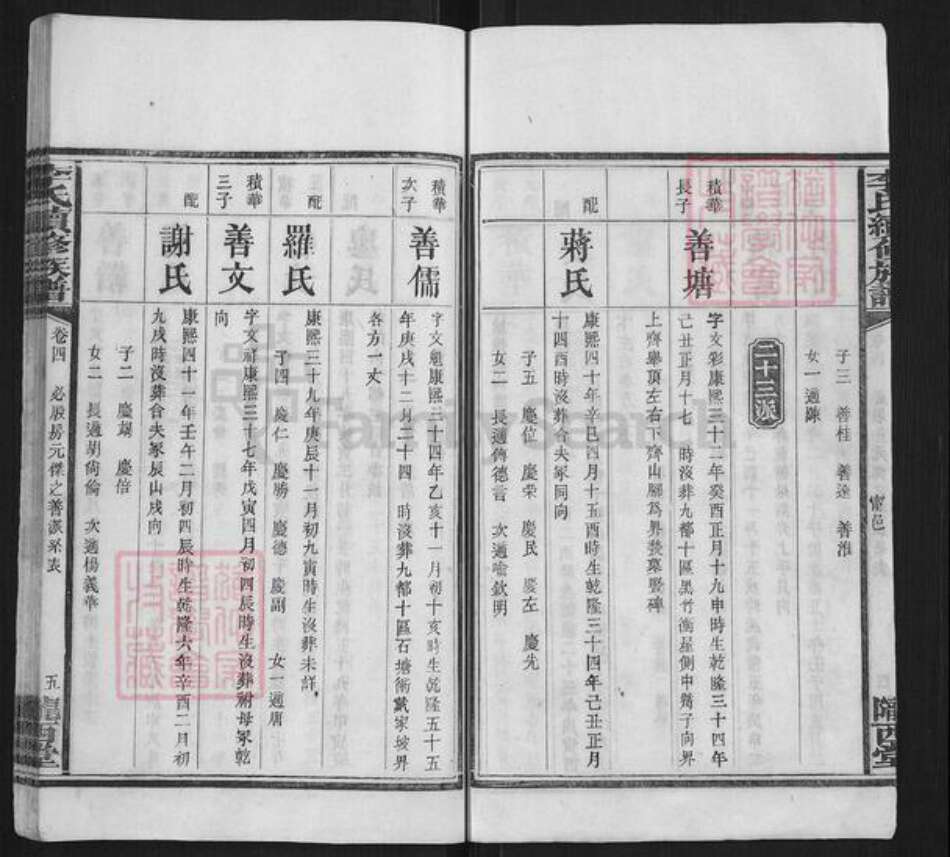 李氏續修族譜
隴西堂
子三 善桂 善達 善淮 甯邑
女一適陳
二十三派
積華長子
善塘
字文彩康熙三十二年癸酉正月十九申時生乾隆三十四年
己丑正月十七 時沒葬九都十區黑竹衝星側申 子向界
上齊舉頂左右下齊山腳爲界 墓豎碑
配
蔣氏
康熙四十年辛巳四月十五酉時生乾隆三十四年己丑正月
十四酉時沒葬合夫冢同向
子五 慶位 慶榮 慶民 慶左 慶先
女二 長適 德音 次適喻欽明
積華次子
善儒
字文魁康熙三十四年乙亥十一月初十亥時生乾隆五十五
年庚戌十二月二十四 時沒葬九都十區石塘衝戴家坡界
各方一丈
配
羅氏
康熙三十九年庚辰十一月初九寅時生沒葬未詳
子四 慶仁 慶勝 慶德 慶副 女一適唐
積華三子
善文
字文 康熙三十七年戊寅四月初四辰時生沒葬祔母冢乾
向
配
謝氏
康熙四十一年壬午二月初四辰時生乾隆六年辛酉二月初
九戌時沒葬合夫冢辰山戌向
子二 慶瑞 慶倍
女二 長適胡尚倫 次適楊義華
李氏續修族譜
卷四 必股房元傑之善派系表
五
隴西堂
FamilySearch